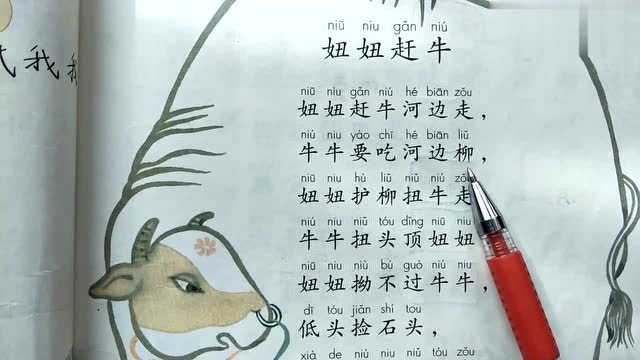 我
niū niu gǎn niú
妞妞赶牛
niū niu gǎn niú hé biān zǒu
妞妞赶牛河边走，
niú niú yào chī hé biān liǔ
牛牛要吃河边柳，
niū niu hù liǔ niǔ niú
妞妞护柳扭牛走
niú niu niǔ tóu dǐng niū niu
牛牛扭头顶妞妞
niū niu niù bú guò niú niu
妞妞拗不过牛牛，
dī tóu jiǎn shí tou
低头捡石头，
xià de niú niu niǔ tóu zǒu